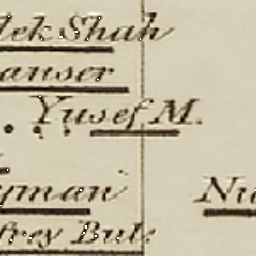 lek Shah
anser
Yusef M.
yman
Nu
frey Bul